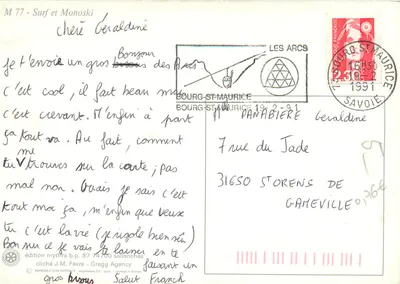 M 77 - Surf et Monoski
Chère Géraldine
Bonjour
Je t'envoie un gros bisous des Arcs
c'est cool, il fait beau mais
c'est crevant. M'enfin à part
ça tout va. Au fait, comment
me
tu trouves sur la carte; pas
mal non. Ouais je sais c'est
tout moi ça, m'enfin que veux
tu c'est la vie (je rigole bien sûr)
Bon sur ce je vais te laisser en te
faisant un
gros bisous Salut Franck
édition mythra b.p. 87 74700 sallanches
cliché J.M. Favre - Gregg Agency
LES ARCS
BOURG-ST-MAURICE
BOURG-ST-MAURICE 19.2-91
73 BOURG ST MAURICE
16H30
19-2
1991
SAVOIE
PANABIERE Geraldine
7 rue du Jade
31650 ST ORENS DE
GAMEVILLE